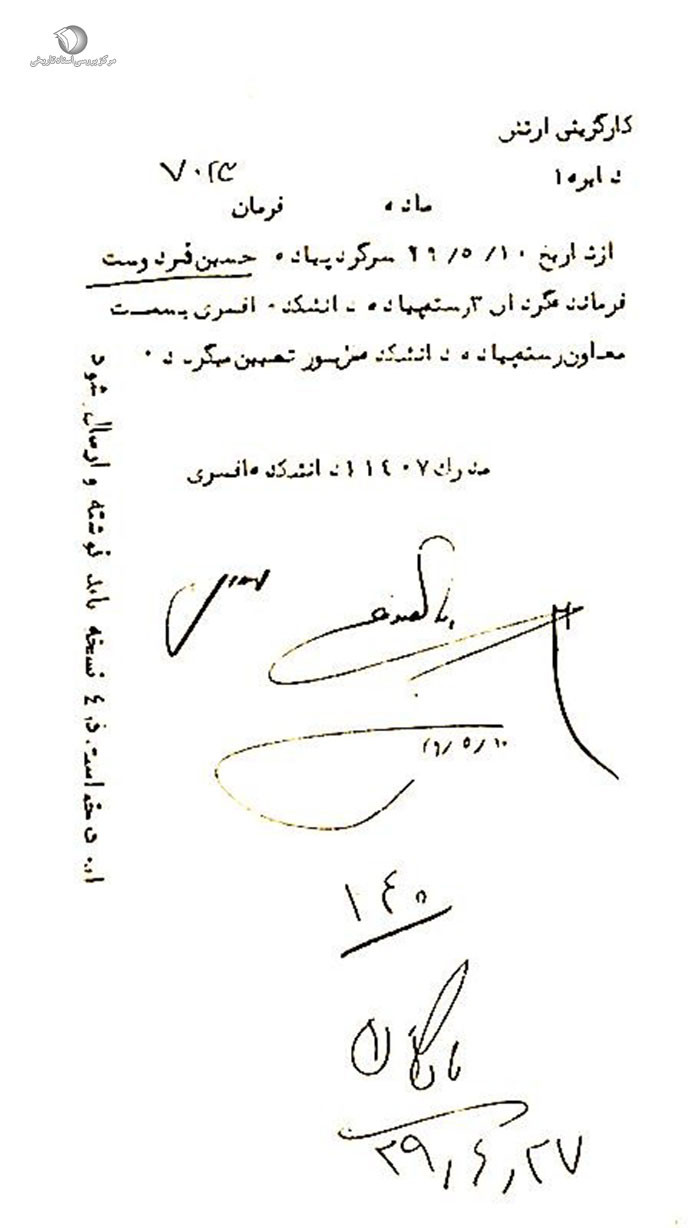 مرکز بررسی اسناد تاریخی
کارگزینی ارتش
دایره ۱
۷۰۲۳
ماده فرمان
ازتاریخ ۲۹/۵/۱۰ سرگرد پیاده حسین فردوست
فرمانده گردان ۳ رسته پیاده دانشکده افسری بسمت
معاون رسته پیاده دانشکده مزبور تعیین میگردد ۰
مدرک ۱۱۴۰۷ دانشکده افسری
۲۹/۵/۱۰
۱۴۵
بایگانی
۲۹/۴/۲۷
است. در ٤ نسخه باید نوشته و ارسال شود